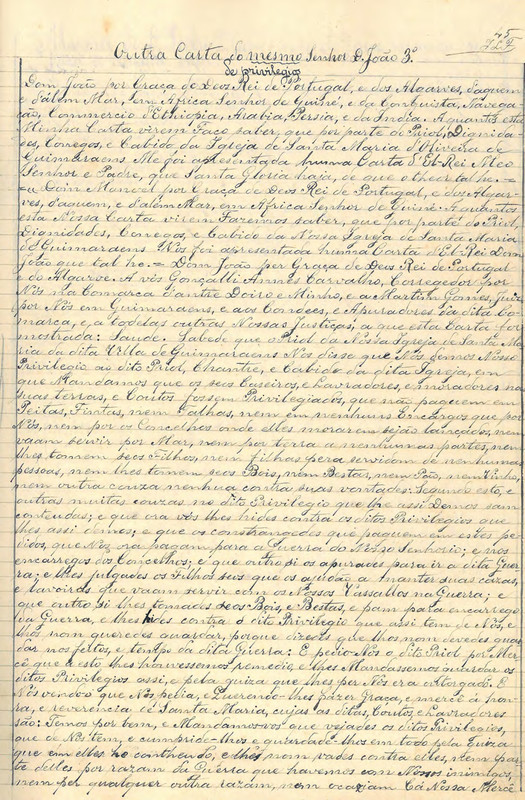 75
Outra Carta do mesmo Senhor D. João 3º
de privilegio
Dom João por Graça de Deos Rei de Portugal, e dos Algarves, daquem
e dalem Mar, em Africa Senhor de Guiné, e da Conquista, Navega-
ção, Commercio d'Ethiopia, Arabia, Persia, e da India. A quantos esta
Minha Carta virem Faço saber, que por parte do Priol, Dignida-
des, Conegos, e Cabido da Igreja de Santa Maria d'Oliveira de
Guimaraens Me foi apresentada huma Carta d'El-Rei Meo
Senhor e Padre, que Santa Gloria haja, de que o theor tal he. =
Dom Manoel por Graça de Deos Rei de Portugal, e dos Algar-
ves, daquem, e dalem Mar, em Africa Senhor de Guiné. A quantos
esta Nossa Carta virem Fazemos saber, que por parte do Priol,
Dignidades, Conegos, e Cabido da Nossa Igreja de Santa Maria
de Guimaraens Nos foi apresentada huma Carta d'El Rei Dom
João que tal he. = Dom João per Graça de Deus Rei de Portugal
e do Algarve. A vós Gonçalli Annes Carvalho, Corregedor por
Nós na Comarca d'antre Doiro e Minho, e a Martim Gomes, juiz
por Nós em Guimaraens, e aos Coudees, e Apuradores da dita Co-
marca, e a todelas outras Nossas Justiças, a que esta Carta for
mostrada: Saude. Sabede que o Priol da Nossa Igreja de Santa Ma-
ria da dita Villa de Guimaraens Nos disse que Nós Demos Nosso
Privilegio ao dito Priol, Chantre, e Cabido da dita Igreja, em
que Mandamos que os seus Caseiros, e Lavradores, e Moradores nas
suas terras, e Coutos fossem Privilegiados, que não paguem em
Peitas, Fintas, nem Talhas, nem em nenhuns Encargos que por
Nós, nem por os Concelhos onde elles morarem sejão lançados, nem
vaam servir por Mar, nem por terra a nenhumas partes, nem
lhes tomem seos Filhos, nem filhas pera servidam de nenhumas
pessoas, nem lhes tomem seos Bois, nem Bestas, nem Pão, nem Vinho,
nem outra couza nenhua contra suas vontades: Segundo esto, e
outras muitas couzas no dito Privilegio que lhe assi Demos sam
contendas; e que ora vós lhes hides contra os ditos Privilegios que
lhes assi demos; e que os constrangedes que paguem em estes pe-
didos, que Nós ora pagam para a Guerra do Nosso Senhorio; e nos
encarregos dos Concelhos; e que outro si os apurades para ir á dita Guer-
ra; e lhes julgades os Filhos seus que os ajudão a manter suas cazas,
e lavoiras que vaam servir com os Nossos Vassallos na Guerra; e
que outro si lhes tomades seos Bois, e Bestas, e pam para encarrego
da Guerra, e lhes hides contra o dito Privilegio que assi tem de Nós, e
lhos nom queredes guardar, porque dizedes que lhos nom devedes guar-
dar nos feitos, e tempo da dita Guerra: E pedio Nos o dito Priol por Mer-
cê que a esto lhes houvessemos remedio, e lhes Mandassemos guardar os
ditos Privilegios assi, e pela guiza que lhes per Nós era outorgado. E
Nós vendo o que Nos pedia, e Querendo-lhes fazer Graça, e mercê á hon-
ra, e reverencia de Santa Maria, cujas as ditas, Coutos, e Lavradores
são: Temos por bem, e Mandamos-vos que vejades os ditos Privilegios,
que de Nós tem, e cumpride-lhos e guardade-lhos em todo pela guiza
que em elles he contheudo, e lhes nom vades contra elles, nem par-
te delles por razam da Guerra que havemos com Nossos inimigos,
nem por qualquer outra razam, nem Cá Nossa Mercê